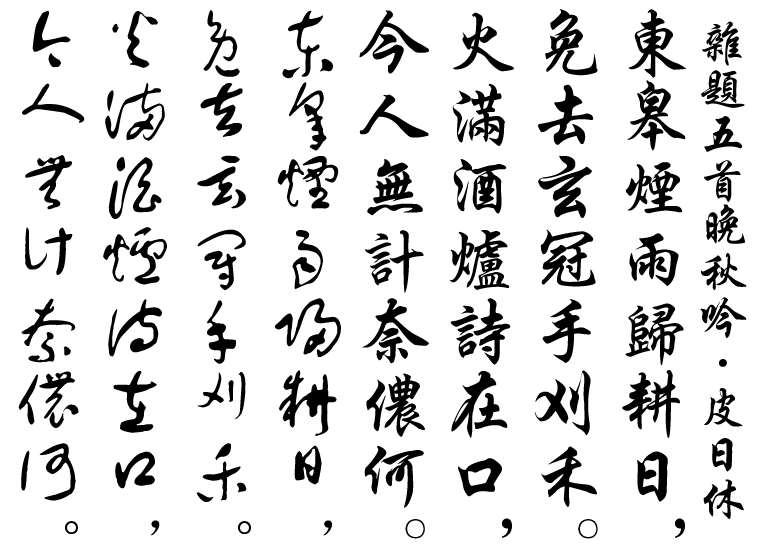 雜題五首晚秋吟·皮日休
東皋煙雨歸耕日，
免去玄冠手刈禾。
火滿酒爐詩在口，
今人無計奈儂何。
東皋煙雨歸耕日，
免去玄冠手刈禾。
火滿酒爐詩在口，
今人無計奈儂何。